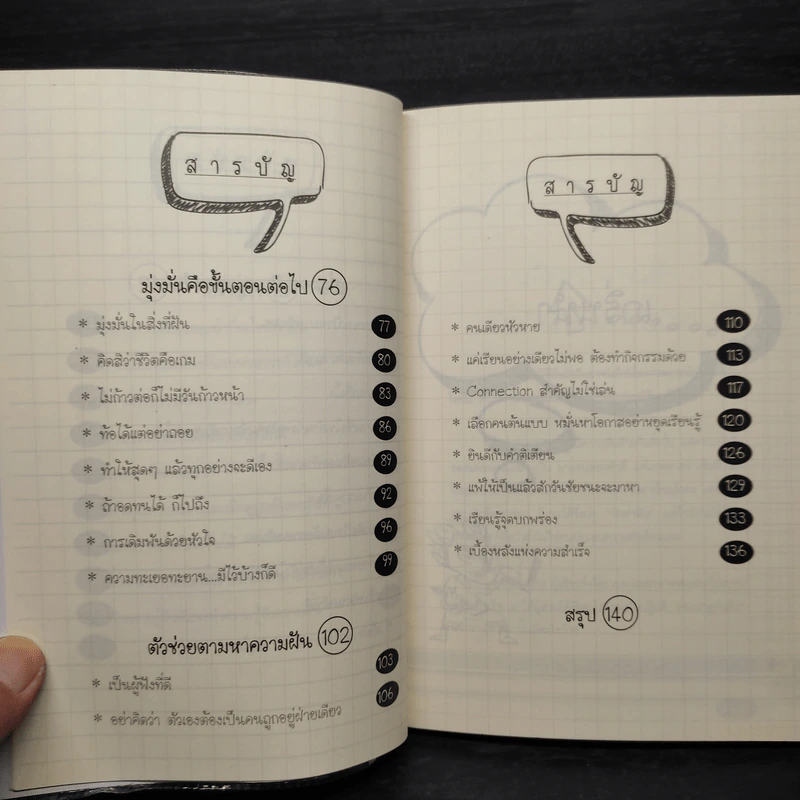 สารบัญ
มุ่งมั่นคือขั้นตอนต่อไป 76
* มุ่งมั่นในสิ่งที่ฝัน 77
* คิดสิว่าชีวิตคือเกม 80
* ไม่ก้าวต่อก็ไม่มีวันก้าวหน้า 83
* ท้อได้แต่อย่าถอย 86
* ทำให้สุดๆ แล้วทุกอย่างจะดีเอง 89
* ถ้าอดทนได้ ก็ไปถึง 92
* การเดิมพันด้วยหัวใจ 96
* ความทะเยอทะยาน...มีไว้บ้างก็ดี 99
ตัวช่วยตามหาความฝัน 102
* เป็นผู้ฟังที่ดี 103
* อย่าคิดว่า ตัวเองต้องเป็นคนถูกอยู่ฝ่ายเดียว 106
สารบัญ
* คนเดียวหัวหาย 110
* แค่เรียนอย่างเดียวไม่พอ ต้องทำกิจกรรมด้วย 113
* Connection สำคัญไม่ใช่เล่น 117
* เลือกคนต้นแบบ หมั่นหาโอกาสอย่าหยุดเรียนรู้ 120
* ยินดีกับคำติเตียน 126
* แพ้ให้เป็นแล้วสักวันชัยชนะจะมาหา 129
* เรียนรู้จุดบกพร่อง 133
* เบื้องหลังแห่งความสำเร็จ 136
สรุป 140